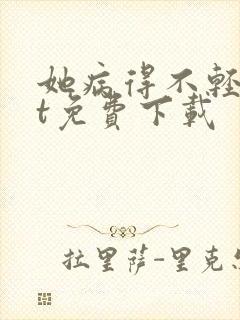 她病得不輕
t免費下載
拉里薩-里克